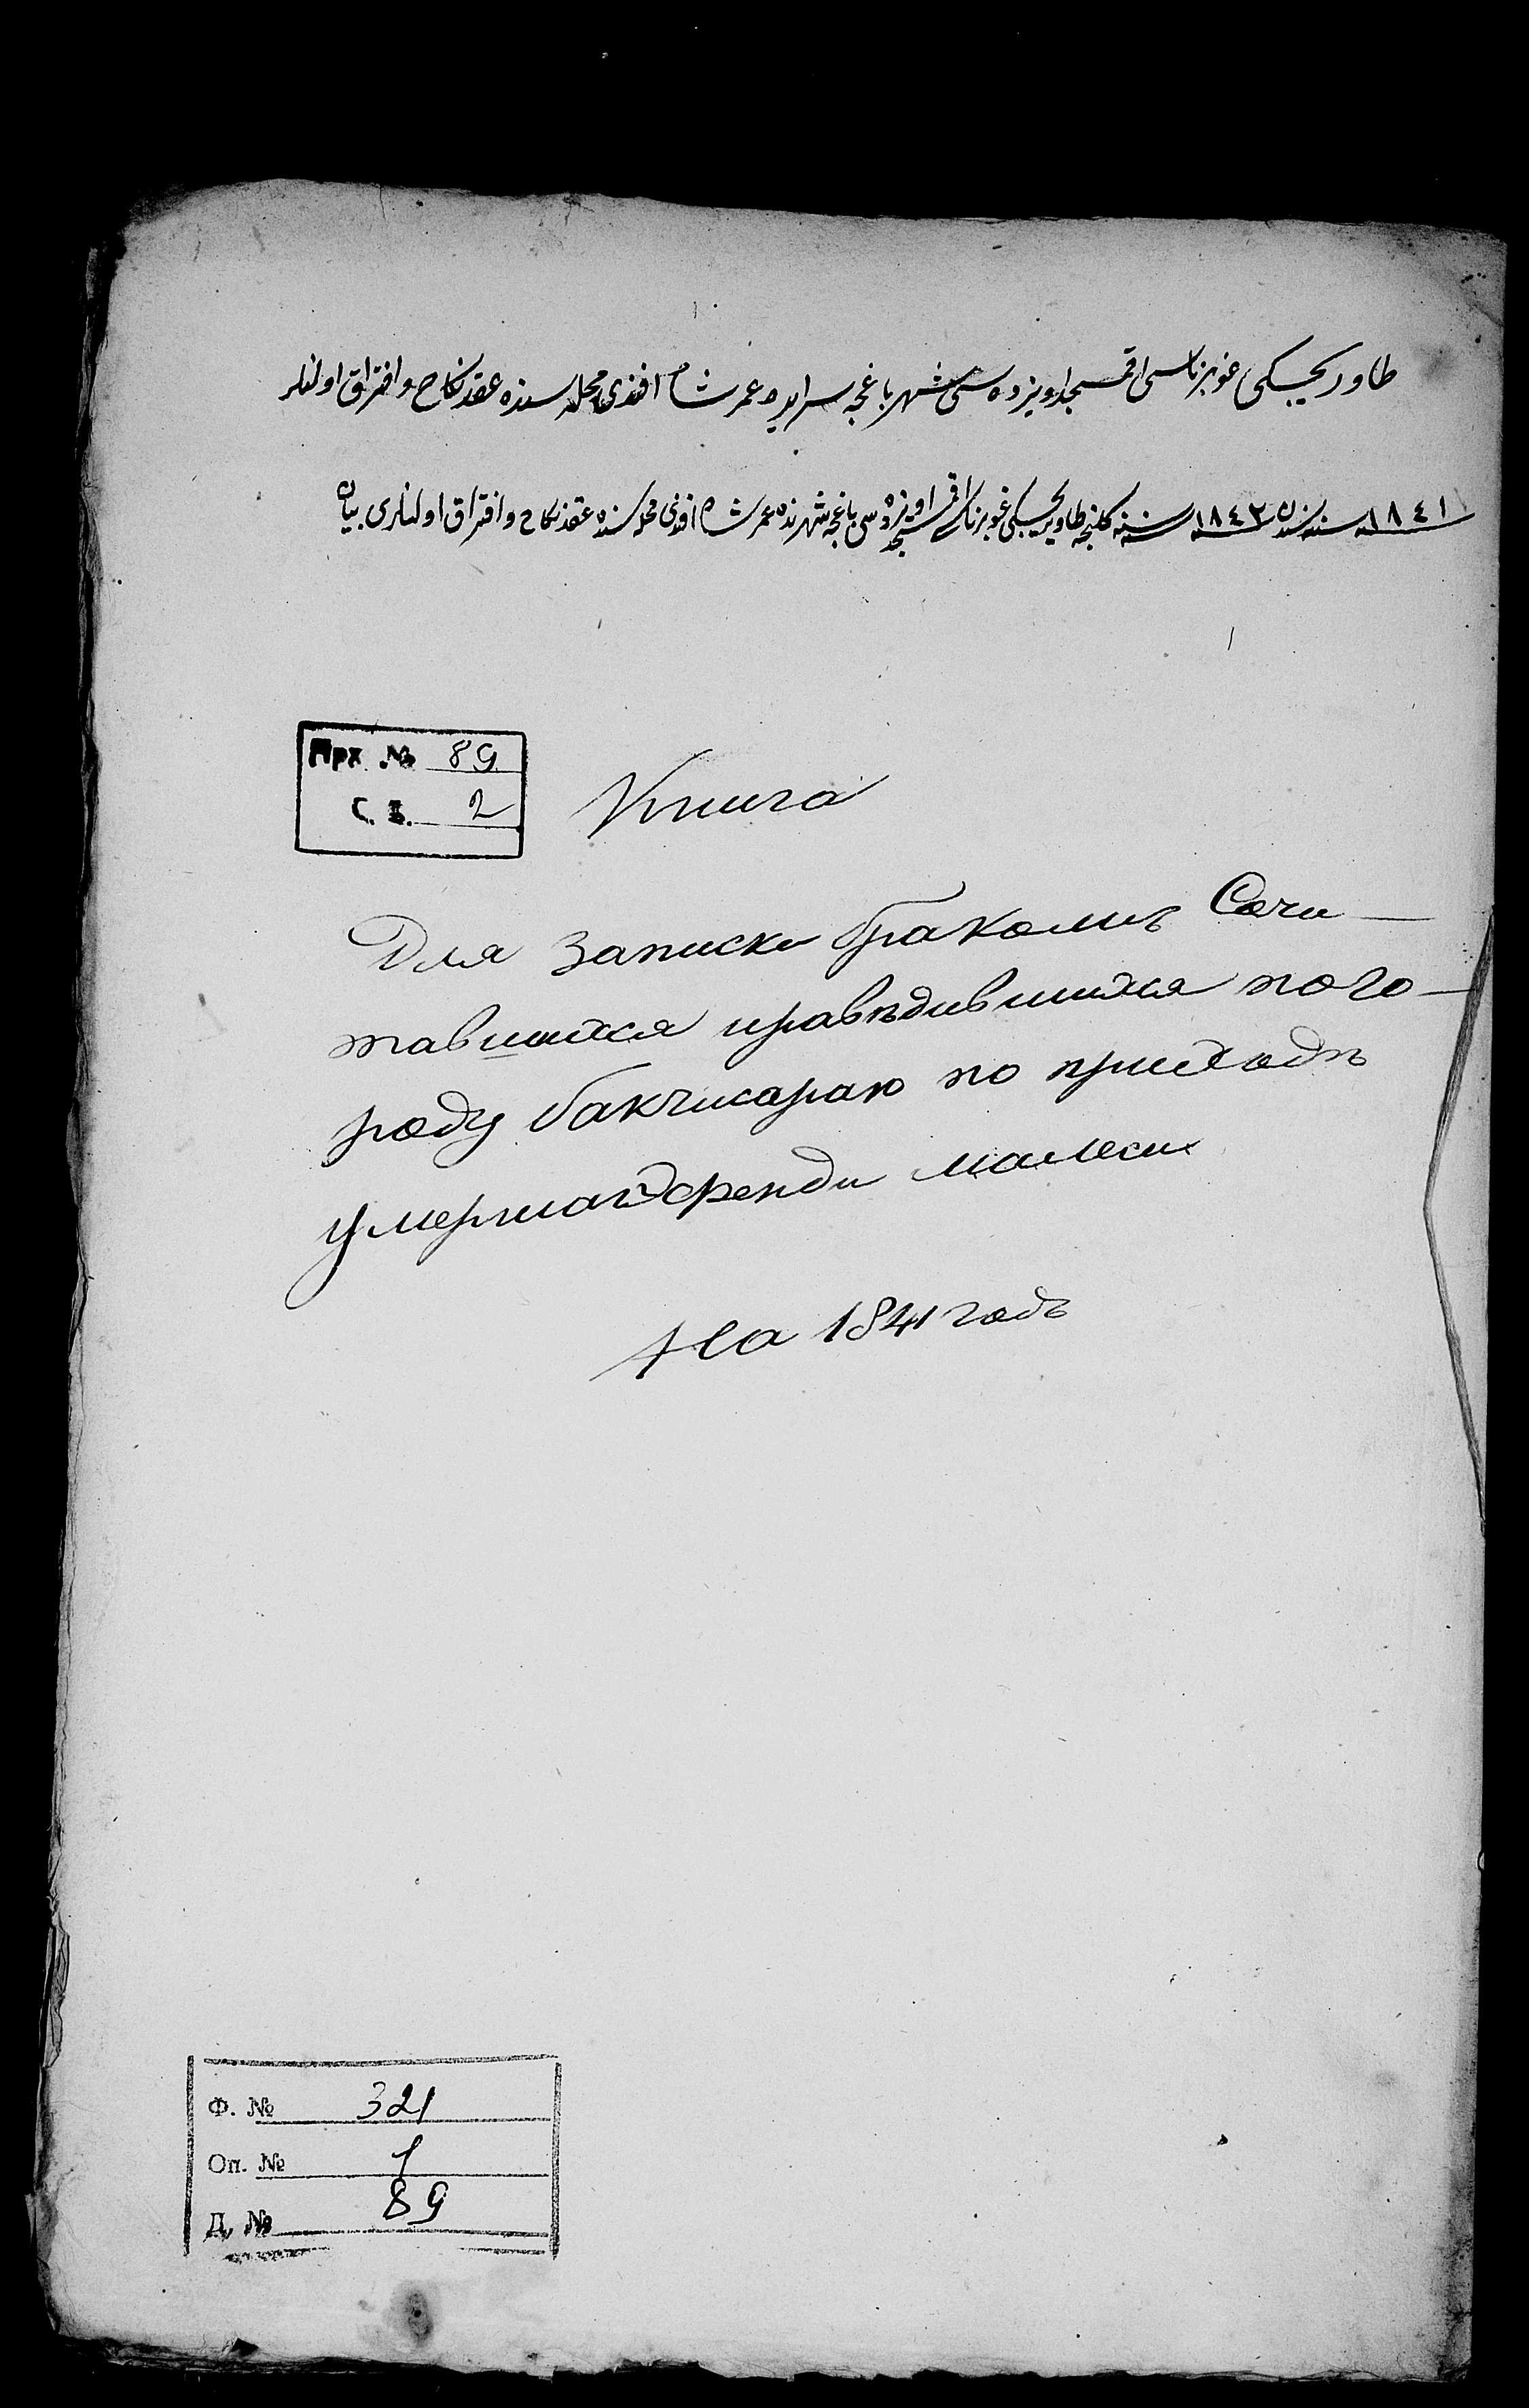 طاوريچيسكى غوبرناسى اقمسجد اويزده سى شهر باغچه سرايده عمر شاه افندى محله سنده عقد نكاح و افتراق اولنلر
١٨٤١ سنه سندن ١٨٤٢ سنه سنه كلنجه طاوريچيسكى غوبرناسى اقمسجد اويزده سى باغچه شهرنده عمر شاه افندى محله سنده عقد نكاح و افتراق اولنلرى بيان
Прх № 89
С. В. 2
Книга
Для записки бракомъ Сочи-
тавшихся иравѣдившихся пого-
роду бакчисараю по приходѣ
умершаэфенди малеси
На 1841 годъ
Ф. № 321
Оп. № 1
Д. № 89